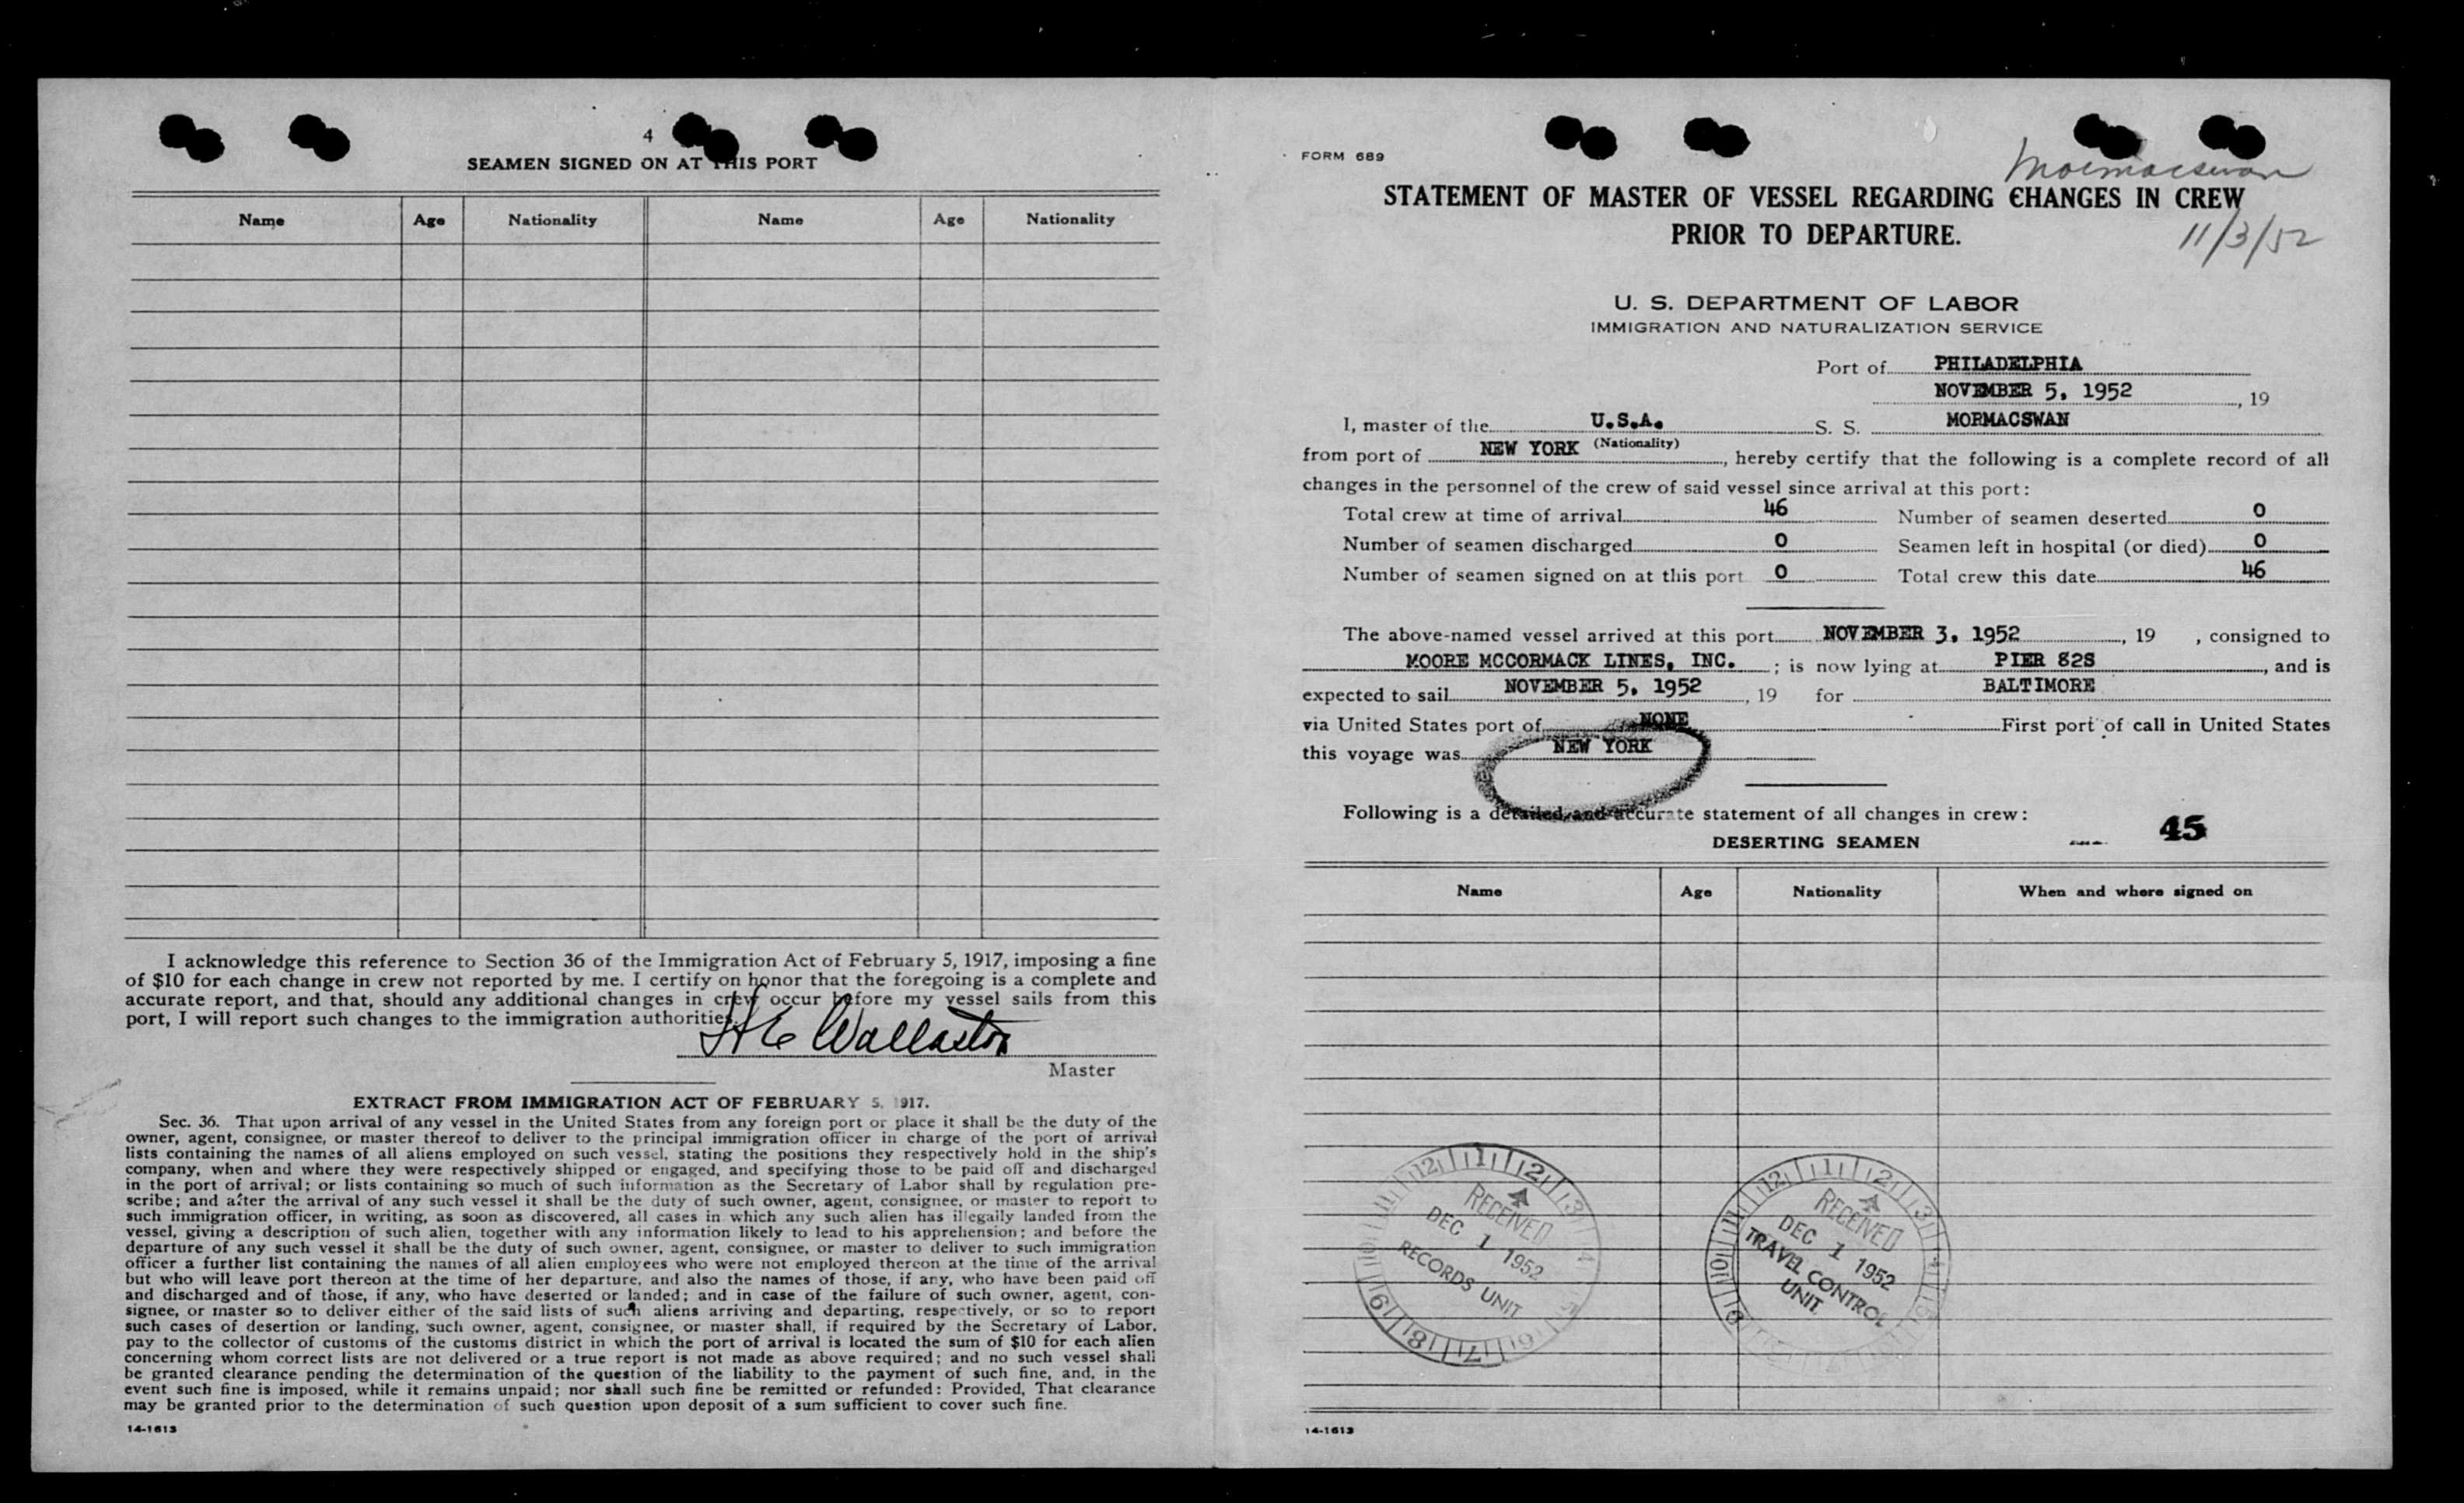 4
SEAMEN SIGNED ON AT THIS PORT
Name Age Nationality Name Age Nationality
I acknowledge this reference to Section 36 of the Immigration Act of February 5, 1917, imposing a fine
of $10 for each change in crew not reported by me. I certify on honor that the foregoing is a complete and
accurate report, and that, should any additional changes in crew occur before my vessel sails from this
port, I will report such changes to the immigration authorities.
H E Wollaston
Master
EXTRACT FROM IMMIGRATION ACT OF FEBRUARY 5, 1917.
Sec. 36. That upon arrival of any vessel in the United States from any foreign port or place it shall be the duty of the
owner, agent, consignee, or master thereof to deliver to the principal immigration officer in charge of the port of arrival
lists containing the names of all aliens employed on such vessel, stating the positions they respectively hold in the ship's
company, when and where they were respectively shipped or engaged, and specifying those to be paid off and discharged
in the port of arrival; or lists containing so much of such information as the Secretary of Labor shall by regulation pre-
scribe; and after the arrival of any such vessel it shall be the duty of such owner, agent, consignee, or master to report to
such immigration officer, in writing, as soon as discovered, all cases in which any such alien has illegally landed from the
vessel, giving a description of such alien, together with any information likely to lead to his apprehension; and before the
departure of any such vessel it shall be the duty of such owner, agent, consignee, or master to deliver to such immigration
officer a further list containing the names of all alien employees who were not employed thereon at the time of the arrival
but who will leave port thereon at the time of her departure, and also the names of those, if any, who have been paid off
and discharged and of those, if any, who have deserted or landed; and in case of the failure of such owner, agent, con-
signee, or master so to deliver either of the said lists of such aliens arriving and departing, respectively, or so to report
such cases of desertion or landing, such owner, agent, consignee, or master shall, if required by the Secretary of Labor,
pay to the collector of customs of the customs district in which the port of arrival is located the sum of $10 for each alien
concerning whom correct lists are not delivered or a true report is not made as above required; and no such vessel shall
be granted clearance pending the determination of the question of the liability to the payment of such fine, and, in the
event such fine is imposed, while it remains unpaid; nor shall such fine be remitted or refunded: Provided, That clearance
may be granted prior to the determination of such question upon deposit of a sum sufficient to cover such fine.
14-1613
FORM 689
Mormacswan
STATEMENT OF MASTER OF VESSEL REGARDING CHANGES IN CREW
PRIOR TO DEPARTURE.
11/3/52
U. S. DEPARTMENT OF LABOR
IMMIGRATION AND NATURALIZATION SERVICE
Port of PHILADELPHIA
NOVEMBER 5, 1952, 19
I, master of the U.S.A. S. S. MORMACSWAN
(Nationality)
from port of NEW YORK, hereby certify that the following is a complete record of all
changes in the personnel of the crew of said vessel since arrival at this port:
Total crew at time of arrival 46 Number of seamen deserted 0
Number of seamen discharged 0 Seamen left in hospital (or died) 0
Number of seamen signed on at this port 0 Total crew this date 46
The above-named vessel arrived at this port NOVEMBER 3, 1952, 19 , consigned to
MOORE MCCORMACK LINES, INC. ; is now lying at PIER 82S, and is
expected to sail NOVEMBER 5, 1952, 19 for BALTIMORE
via United States port of NONE First port of call in United States
this voyage was NEW YORK
Following is a detailed and accurate statement of all changes in crew:
45
DESERTING SEAMEN
Name Age Nationality When and where signed on
12 1 2 3 4 5 6 7 8 9 10 11
RECEIVED
DEC 1 1952
RECORDS UNIT
12 1 2 3 4 5 9 10 11
RECEIVED
DEC 1 1952
TRAVEL CONTROL
UNIT
14-1613